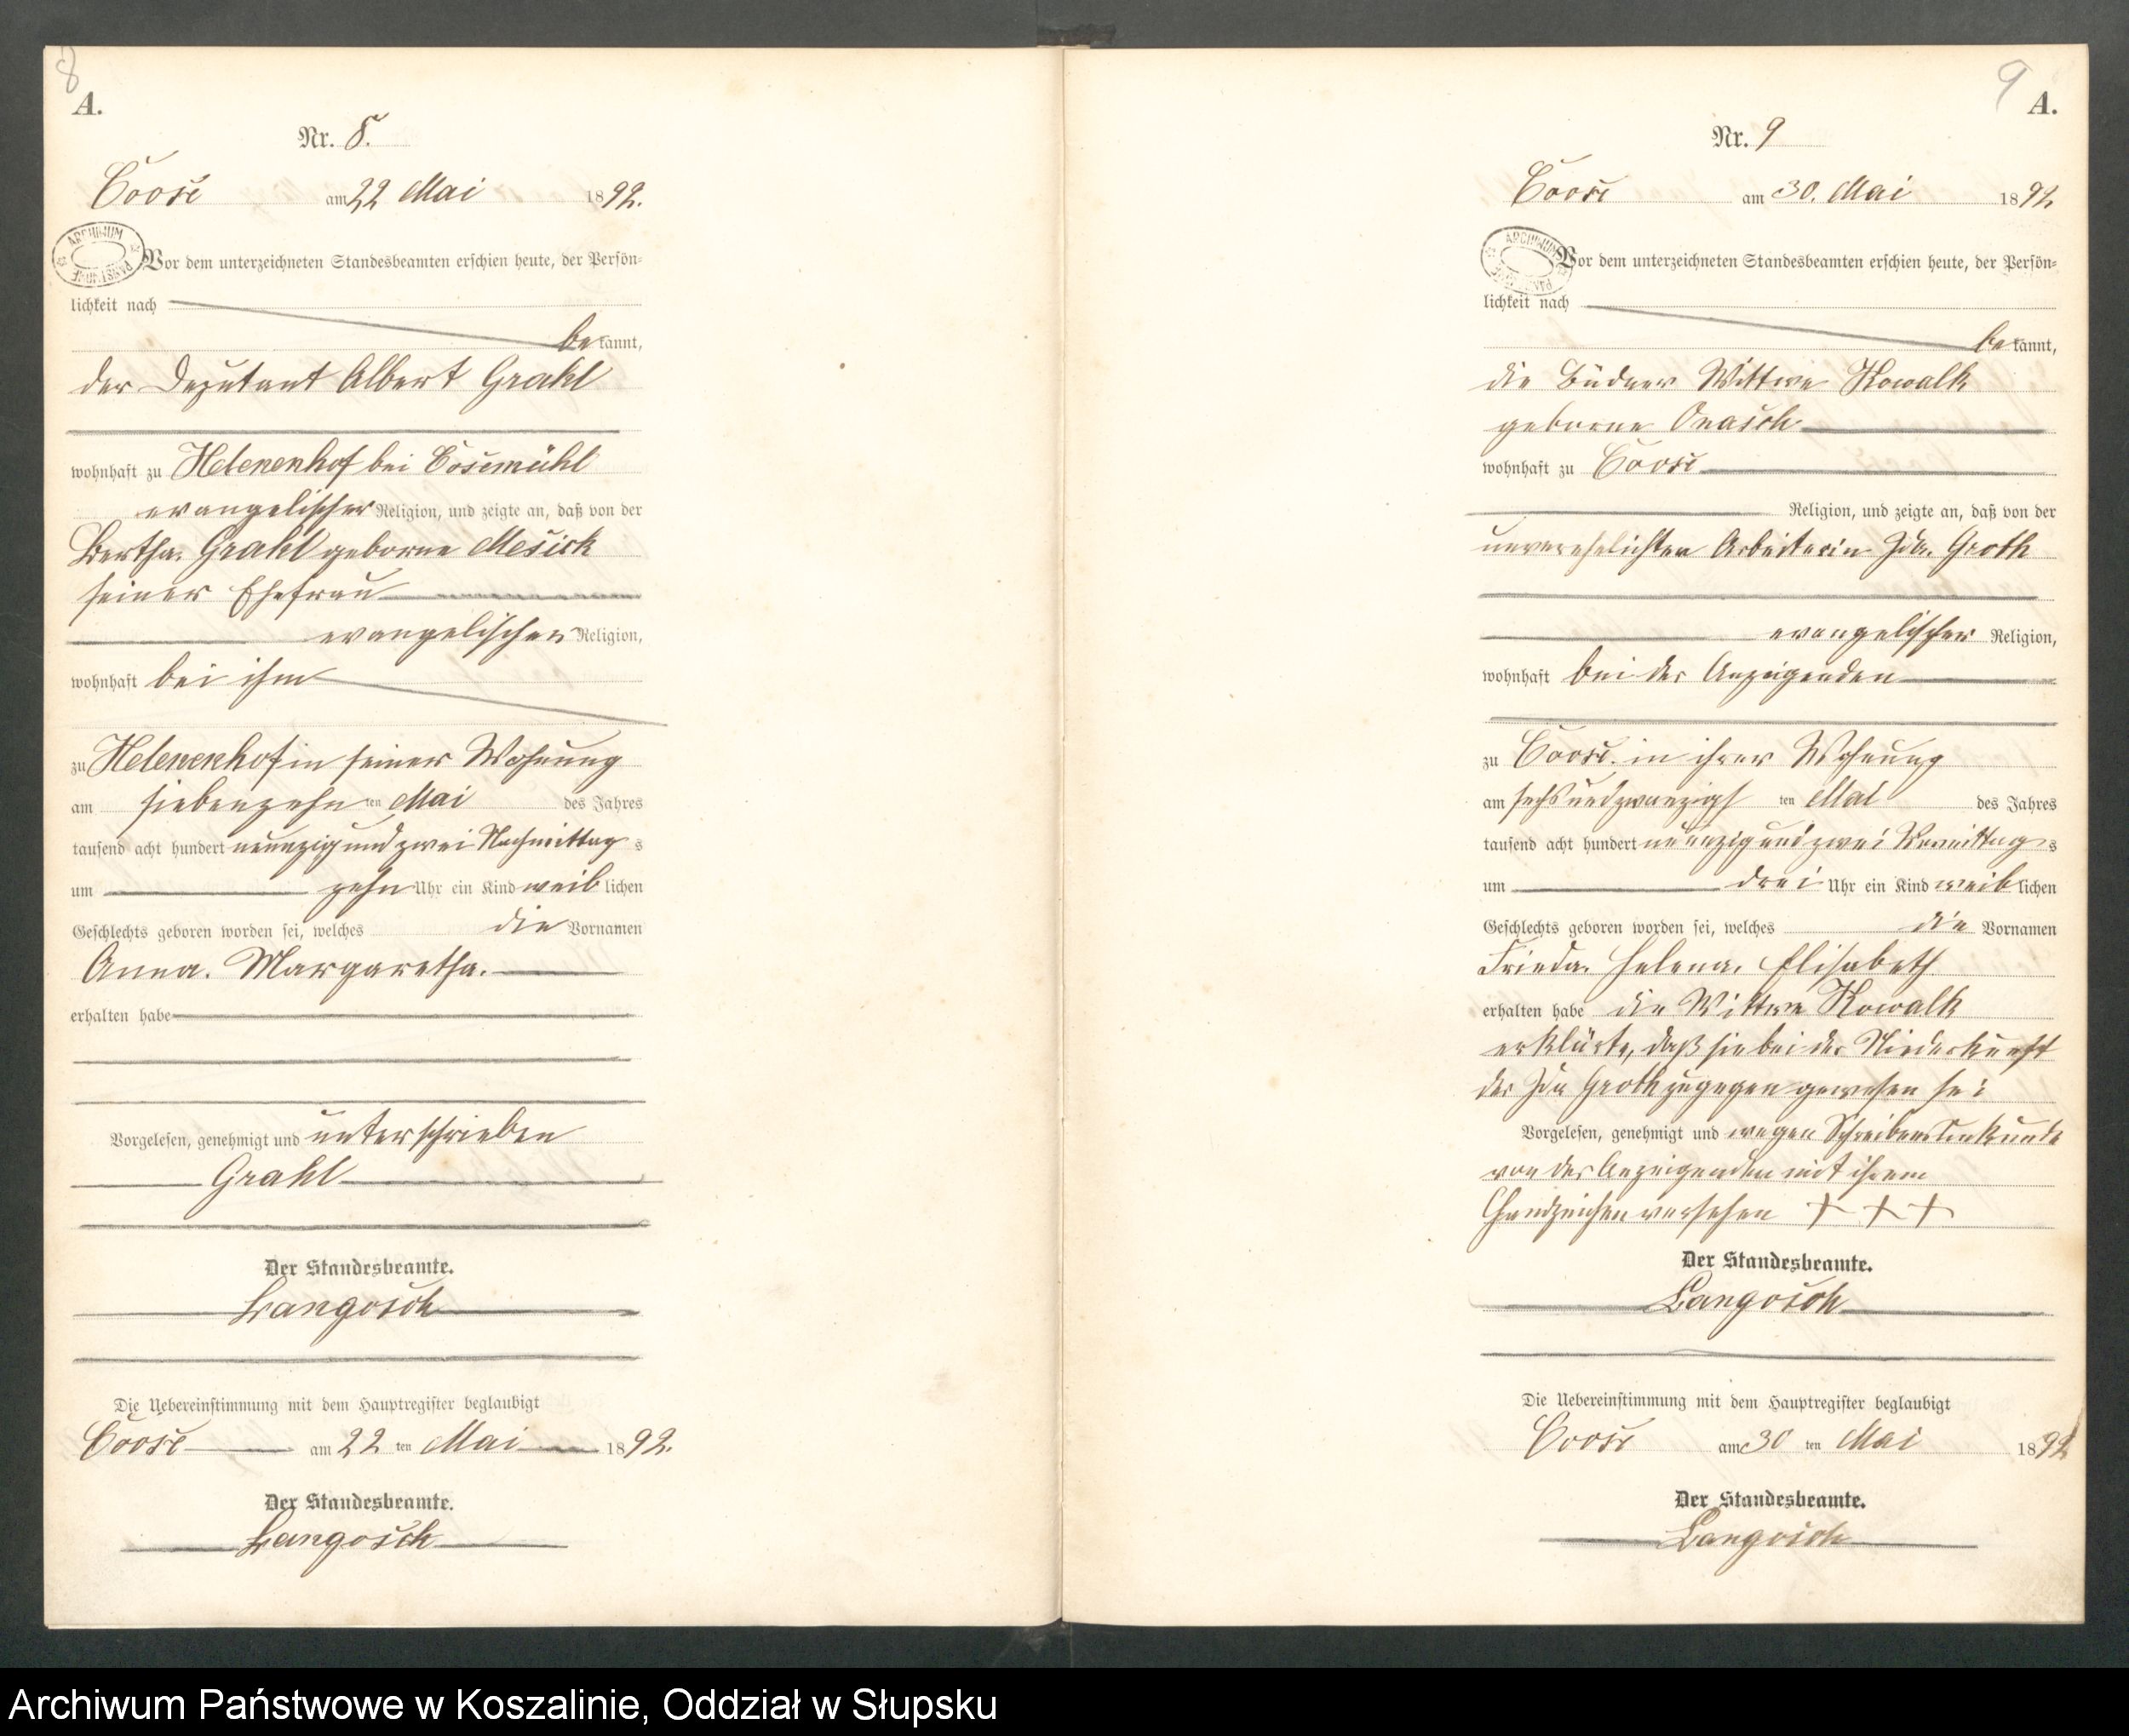 8
A.
Nr. 8.
Coose am 22 Mai 1892.
ARCHIWUM PAŃSTWOWE
Vor dem unterzeichneten Standesbeamten erschien heute, der Persön-
lichkeit nach
bekannt,
der Deputant Albert Grahl
wohnhaft zu Helenenhof bei Cosemühl
evangelischer Religion, und zeigte an, daß von der
Bertha Grahl geborne Mesick
seiner Ehefrau
evangelischer Religion,
wohnhaft bei ihm
zu Helenenhof in seiner Wohnung
am siebenzehn ten Mai des Jahres
tausend acht hundert neunzig und zwei Nachmittags
um zehn Uhr ein Kind weiblichen
Geschlechts geboren worden sei, welches die Vornamen
Anna. Margaretha.
erhalten habe
Vorgelesen, genehmigt und unterschrieben
Grahl
Der Standesbeamte.
Langosch
Die Uebereinstimmung mit dem Hauptregister beglaubigt
Coose am 22 ten Mai 1892.
Der Standesbeamte.
Langosch
9
A.
Nr. 9
Coose am 30. Mai 1892
ARCHIWUM PAŃSTWOWE
Vor dem unterzeichneten Standesbeamten erschien heute, der Persön-
lichkeit nach
bekannt,
die Büdner Wittwe Kowalk
geborne Onasch
wohnhaft zu Coose
Religion, und zeigte an, daß von der
unverehelichten Arbeiterin Ida Groth
evangelischer Religion,
wohnhaft bei der Anzeigenden
zu Coose in ihrer Wohnung
am sechsundzwanzigs ten Mai des Jahres
tausend acht hundert neunzig und zwei Vormittags
um drei Uhr ein Kind weiblichen
Geschlechts geboren worden sei, welches die Vornamen
Frieda. Helena. Elisabeth
erhalten habe die Wittwe Kowalk
erklärte, daß sie bei der Niederkunft
der Ida Groth zugegen gewesen sei
Vorgelesen, genehmigt und wegen Schreibensunkunde
von der Anzeigenden mit ihrem
Handzeichen versehen + + +
Der Standesbeamte.
Langosch
Die Uebereinstimmung mit dem Hauptregister beglaubigt
Coose am 30 ten Mai 1892
Der Standesbeamte.
Langosch
Archiwum Państwowe w Koszalinie, Oddział w Słupsku